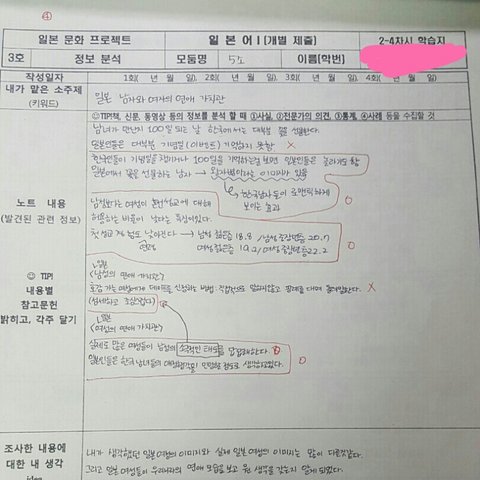 ④
일본 문화 프로젝트 일 본 어Ⅰ(개별 제출) 2-4차시 학습지
3호 정보 분석 모둠명 5조 이름(학번)
작성일자 1회( 년 월 일), 2회( 년 월 일), 3회( 년 월 일), 4회( 년 월 일)
내가 맡은 소주제
(키워드)
일본 남자와 여자의 연애 가치관
☺TIP!책, 신문, 동영상 등의 정보를 분석 할 때 ①사실, ②전문가의 의견, ③통계, ④사례 등을 수집할 것
노트 내용
(발견된 관련 정보)
남녀가 만난지 100일 되는 날 한국에서는 대부분 선물한다.
일본인들은 대부분 기념일(이벤트) 기억하지 못함 X
한국인들이 기념일을 챙기거나 100일을 기억하는걸 보면 일본인들은 놀라기도 함
일본에서 꽃은 선물하는 남자 → 왕자병이라는 이미지가 있음
한국남자들이 로맨틱하게
보이는 효과
남성보다는 여성이 혼전성교에 대해
허용하는 비율이 낮다는 특징이있다.
→ 남성 젊은층 18.8 / 남성 중장년층 20.7
여성 젊은층 19.2 / 여성 중장년층 22.2
☺ TIP!
내용별
참고문헌
밝히고, 각주 달기
일본
<남성의 연애 가치관>
호감 가는 여성에게 데이트를 신청하는 방법. 직접적으로 말하지않고 X
(섬세하고 조심스럽다)
일본
<여성의 연애 가치관>
실제로 많은 여성들이 남성의 소극적인 태도를
일본인들은 한국 남녀들의
조사한 내용에
대한 내 생각
idea
내가 생각했던 일본여성의 이미지와 실제 일본여성의 이미지는 많이 다른것같다.
그리고 일본 여성들이 우리나라의 연애 모습을 보고 뭔 생각을 갖는지 알게 되었다.